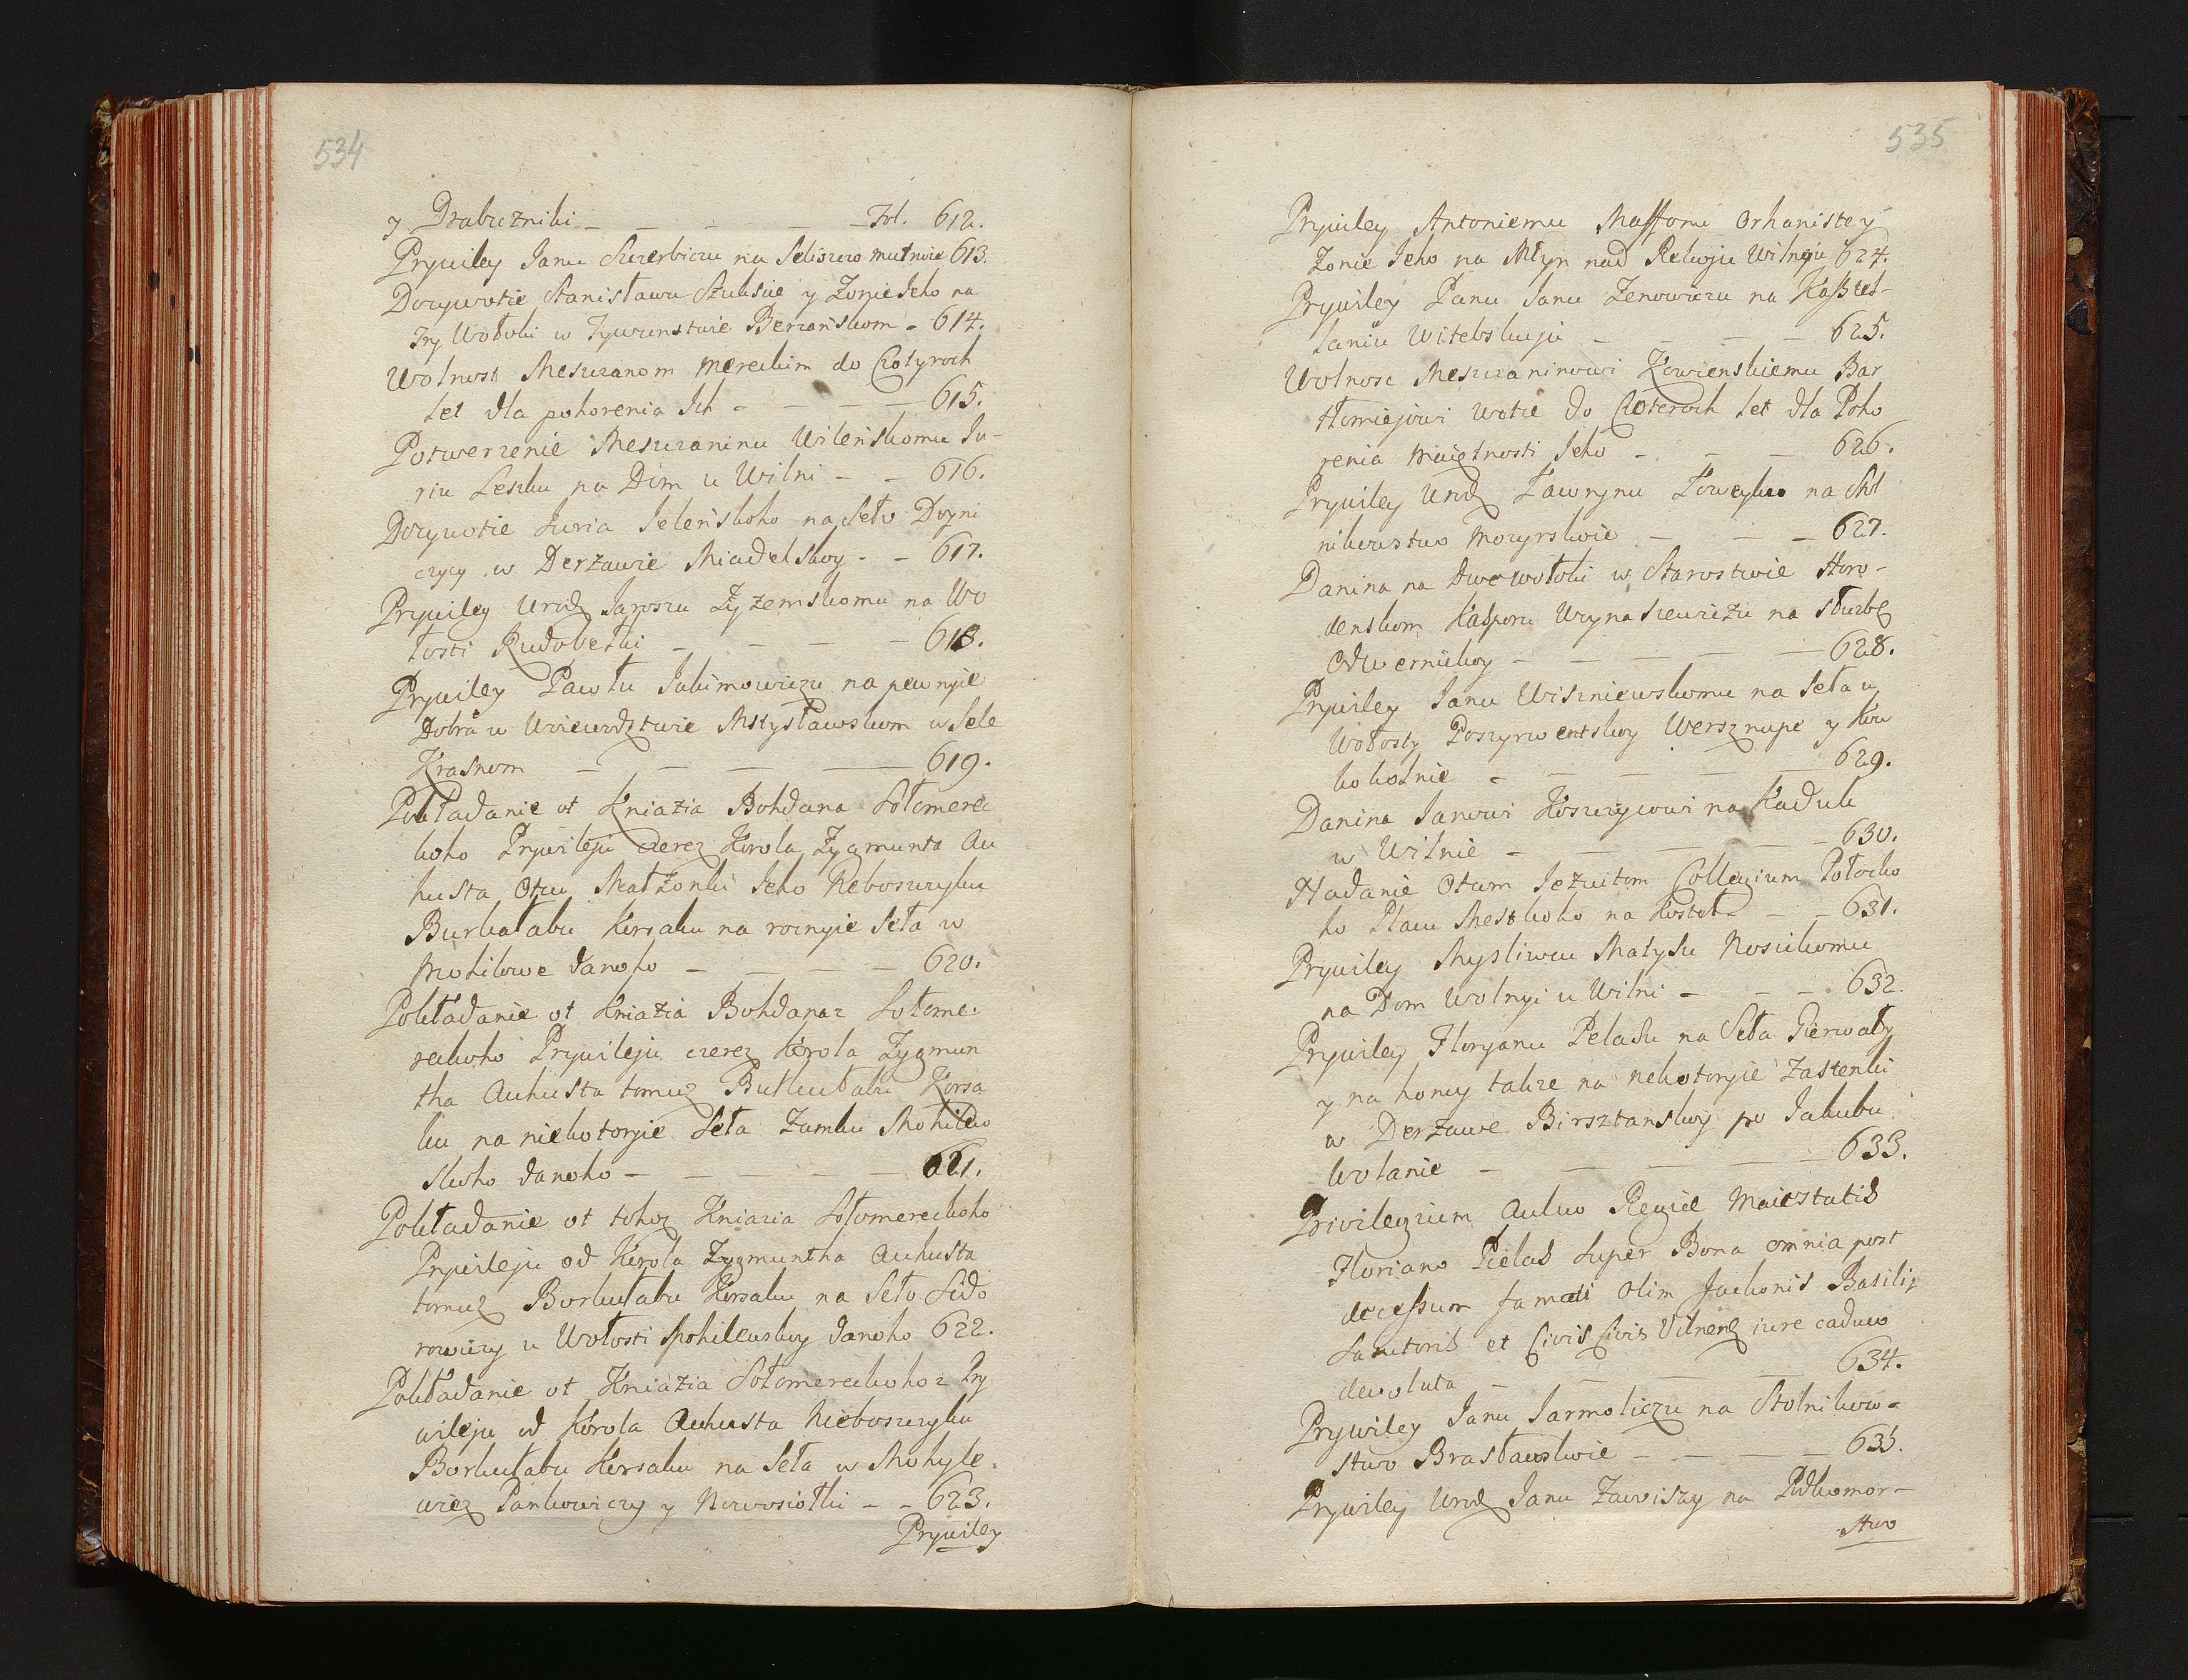 534
y Drabuzniki – – – – – Fol. 612.
Prywiley Janu Szczerbiczu na Seliszczo mutnoie 613.
Dożywotie Stanisławu Szuksie y Żonie Jeho na
Try Wołoki w Tywunstwie Berżańskom – 614.
Wolnost Mesczanom Mereckim do Czotyroch
Let dla pohorenia Ich – – – – 615.
Potwerzenie Mesczaninu Wileńskomu Ju-
riu Leszku na Dom u Wilni – – 616.
Dożywotie Juria Jeleńskoho na Seło Dyyni
czycy w Derżawie Miadelskoy – – 617.
Prywiley Urodz Jaroszu Żyżemskomu na Wo
łosti Rudobełki – – – – 618.
Prywiley Pawłu Jakimowiczu na pewnyie
Dobra w Woiewodztwie Mstysławskom w Sele
Krasnom – – – – 619.
Pokładanie ot Kniazia Bohdana Sołomerec
koho Prywileju czerez Korola Zygmunta Au
husta Otcu Małżonki Jeho Neboszczyku
Burkałabu Korsaku na roznyie Seła w
Mohilowe danoho – – – – 620.
Pokładanie ot Kniazia Bohdana z Sołome-
reckoho Prywileju czerez Korola Zygmun
tha Auhusta tomuz Burkułabu Korsa
ku na niekotoryie Seła Zamku Mohilew
skoho danoho – – – – 621.
Pokładanie ot tohoz Kniazia Sołomereckoho
Prywileju od Korola Zygmuntha Auhusta
tomuz Borkułabu Korsaku na Seło Sido
rowiczy u Wołosti Mohilewskoy danoho 622.
Pokładanie ot Kniazia Sołomereckoho z Pry
wileju od Korola Auhusta Nieboszczyku
Borkułabu Korsaku na Seła w Mohyle-
wiez Pankowiczy y Nowosiołki – – 623.
Prywiley
535
Prywiley Antoniemu Massoni Orhanistey
Żonie Jeho na Młyn nad Rekoju Wilneju 624.
Prywiley Panu Janu Zenowiczu na Kaszteł-
laniu Witebskuju – – – – 625.
Wolnosc Mesczaninowi Kowienskiemu Bar
tłomiejowi Wotce do Czoteroch Let dla Poho
renia Maiętnosti Jeho – – – 626.
Prywiley Urodz Ławrynu Łoweyku na Stol
nikowstwo Mozyrskoie – – – 627.
Danina na Dwe wołoki w Starostwie Horo-
denskom Kasporu Wryna szewiczu na służbę
Odwernickoy – – – – – 628.
Prywiley Janu Wiszniewskomu na Seła u
Wołosty Poszyrwentskoy Wersznupe y Kru
kokolnie – – – – – 629.
Danina Janowi Koszczycowi na Kaduk
w Wilnie – – – – – 630.
Nadanie Otcom Jezuitom Collegium Połocko
ho Placu Mestkoho na Kostoł – – 631.
Prywiley Mysliwcu Matysu Nosickomu
na Dom Wolnyi u Wilni – – – 632.
Prywiley Floryanu Pelasu na Seła Gierwaty
y na koncy takze na nekotoryie Zastenki
w Derżawe Birsztanskoy po Jakubu
Wolanie – – – – 633.
Privilegium Aulico Regiae Maiestatis
Floriano Pielas super Bona omnia post
decessum famati olim Jachonis Basilij
Sartoris et Civis Civis Vilnens iure caduco
devoluta – – – – 634.
Prywiley Janu Jarmoliczu na Stolnikow-
stwo Brasławskoie – – – – 635.
Prywiley Urodz Janu Zawiszy na Podkomor-
stwo